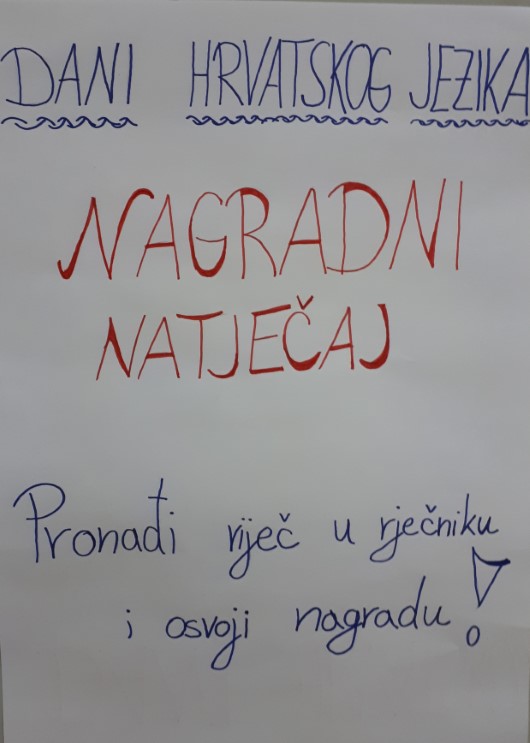 DANI HRVATSKOG JEZIKA
NAGRADNI
NATJEČAJ
Pronađi riječ u rječniku
i osvoji nagradu!